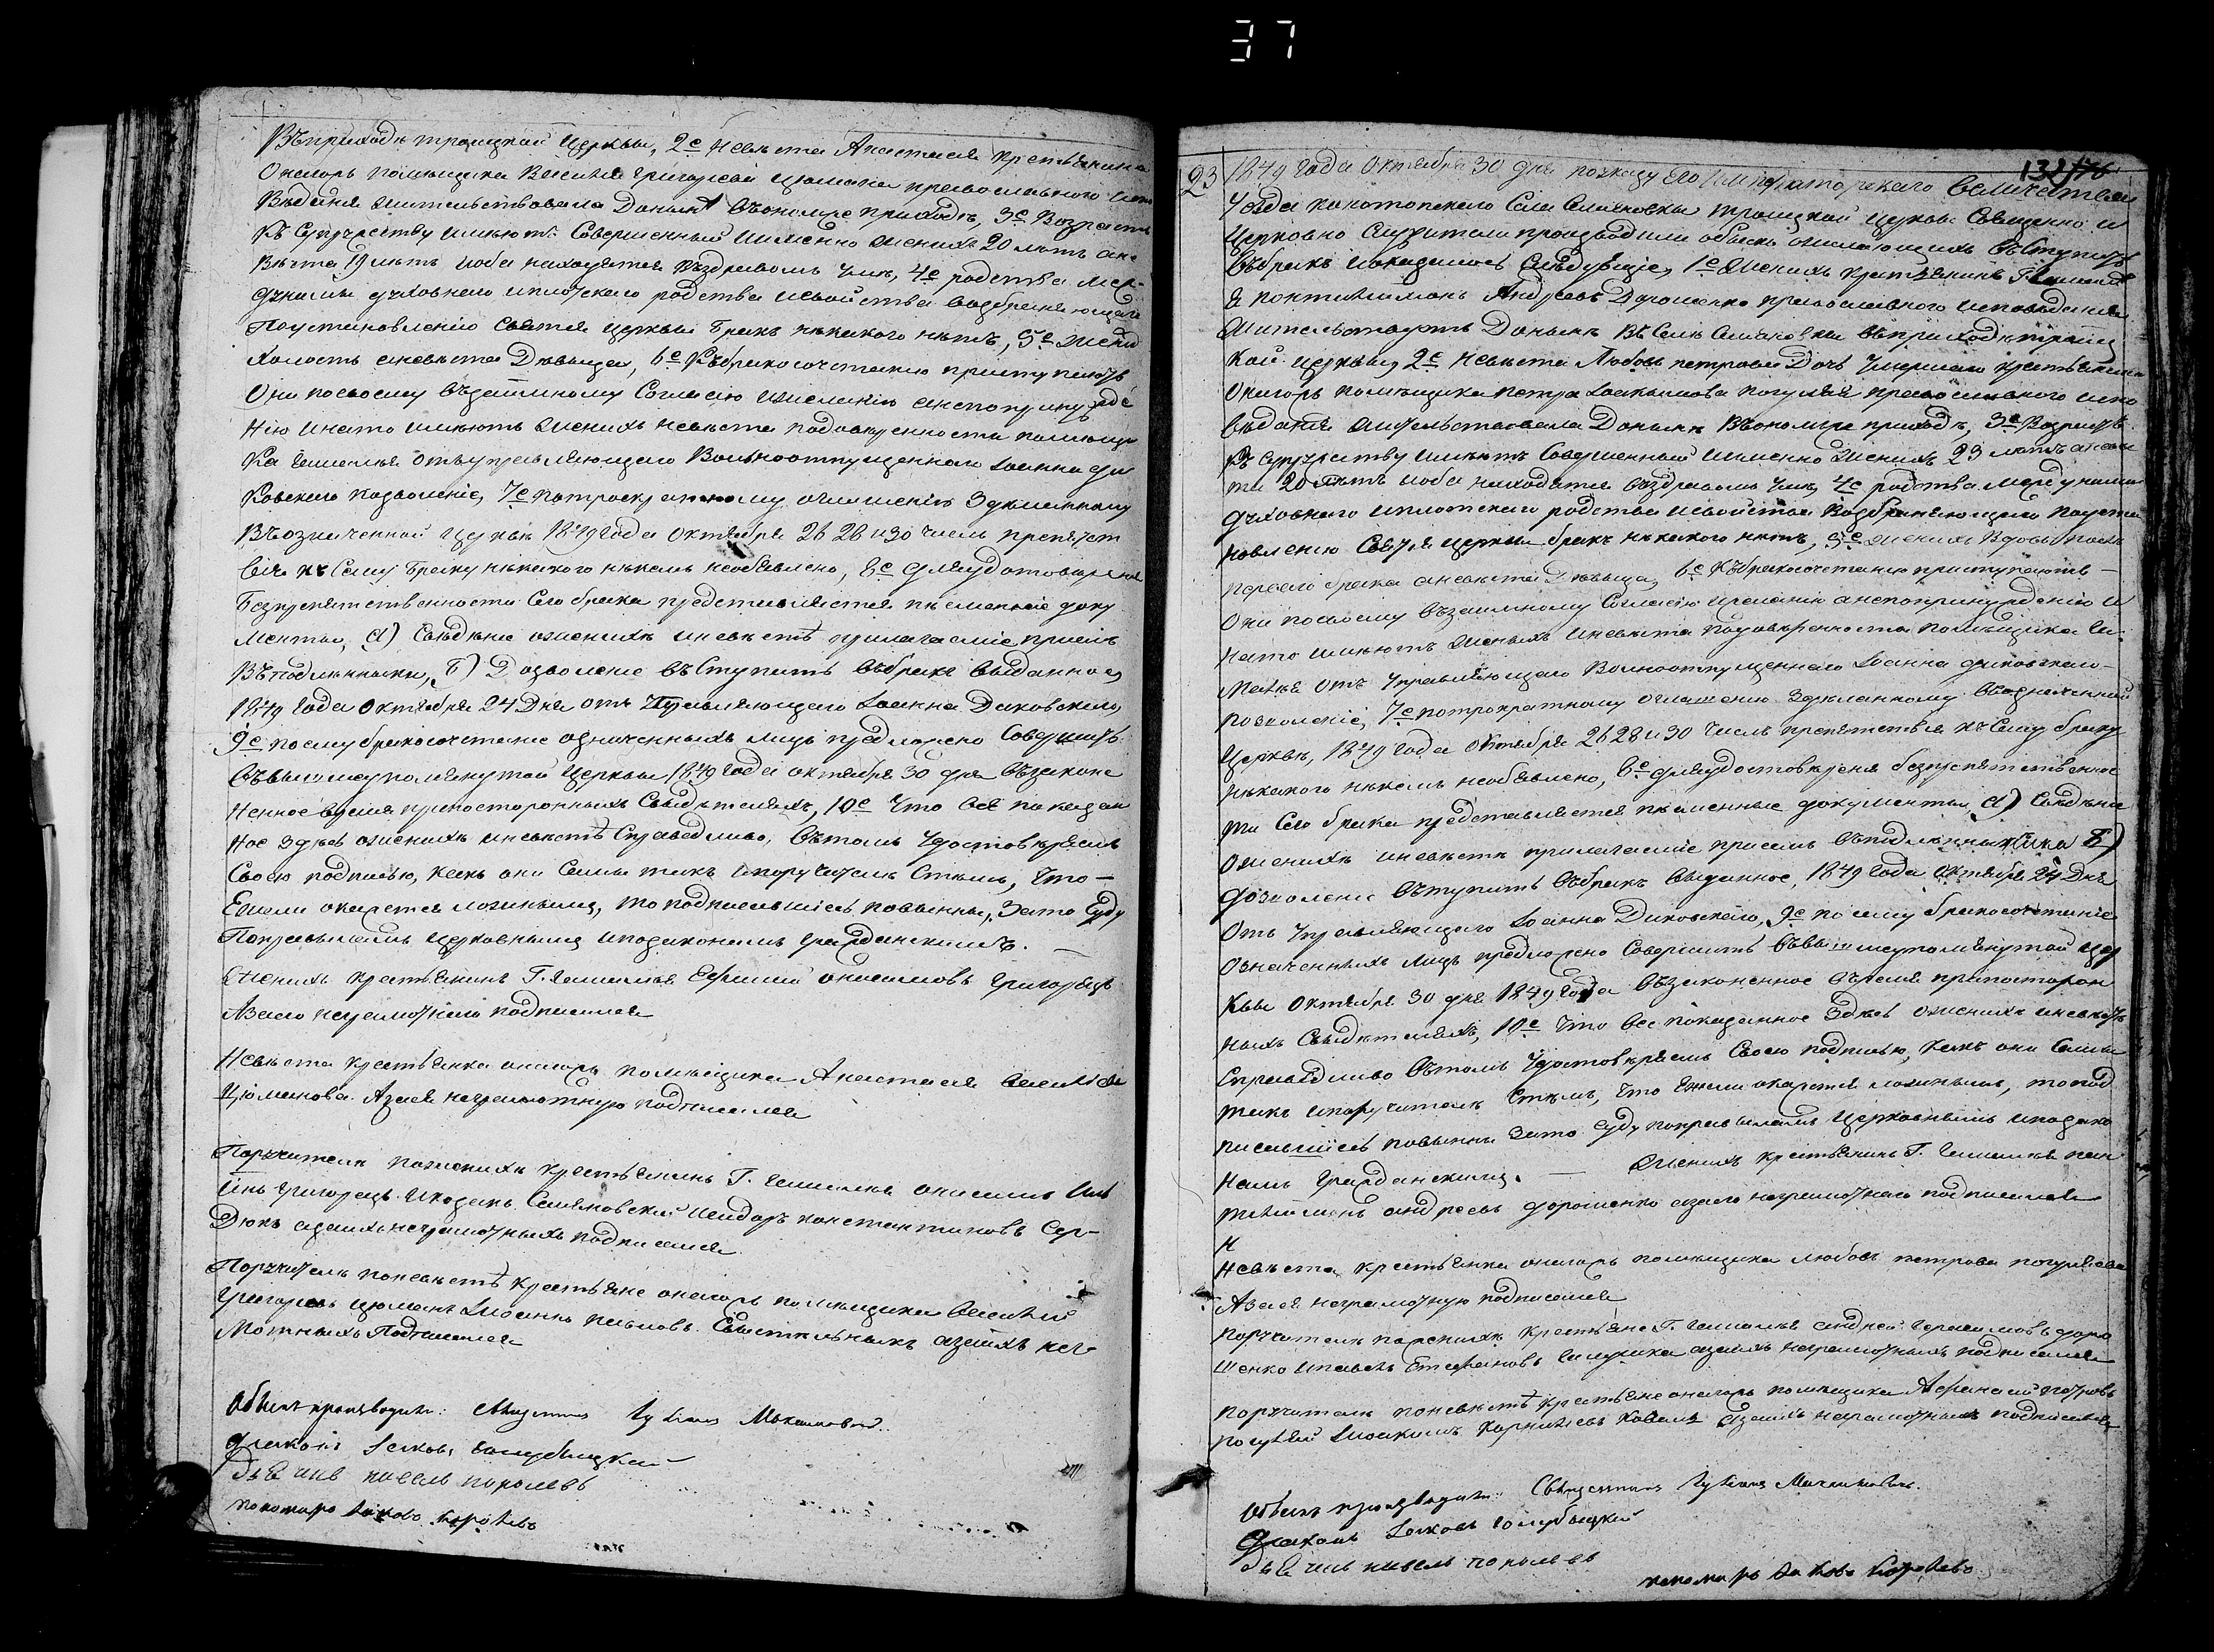 37
Въприходѣ троицкой Церкви, 2е Невѣста Анастасія крестьянина
Онагоръ помѣщика Василія Григорьева Цюмана православнаго испо
Вѣданія жительствовала Донынѣ Вьономъже приходѣ, 3е Возрастъ
Къ Супружеству имѣютъ Совершенный именно женихъ 20 лѣтъ ане
Вѣста 19 лѣтъ иоба находятся Въздравомъ Умѣ, 4е родства меж
дунами духовнаго иплотскаго родства исвойства возбраняющаго
Поустановленію Святыя Церкви бракъ никакого нѣтъ, 5е Женихъ
Холостъ аневѣста Дѣвица, 6е Къбракосочетанію приступаютъ
Они посвоему Взаимному Согласію ижеланію анепопринужде
Нію инато имѣютъ Женихъ Невѣста подовѣренности помѣщи
ка Гамалѣя отъуправляющаго Вольноотпущеннаго Іоанна Ди
ковского позволеніе, 7е потроекратному оглашенію Здѣланному
Въозначенной Церкви 1849 года октября 26 28 и 30 числъ препятст
вія къ Сему браку никакого никемъ необявлено, 8е дляудостовѣренія
Безпрепятственности Сего брака представляются писменные доку
менты, а) Свѣдѣніе оженихѣ иневѣстѣ прилагаеміе присемъ
Въподлинники, Б) Дозволеніе въСтупить Въбракъ выданное
1849 года октября 24 Дня отъ Управляющаго Іоанна Диковского,
9е посему бракосочетаніе означенныхъ лицъ предложено Совершить
Въвышеупомянутой Церкви 1849 года октября 30 дня Възаконо
Ненное время припостороннихъ Свидѣтеляхъ, 10е Что всё показан
ное здѣсь оженихѣ иневѣстѣ Справедливо, Вътомъ Удостовѣряемъ
Своею подписью, какъ они Сами такъ ипоручители Стѣмъ, Что —
Ежели окажется ложнымъ, то подписавшіесь повинны, Зато Суду
Поправиламъ Церковнымъ ипозаконамъ гражданскимъ. —
Женихъ крестьянинъ Г. Гамалѣя Ефимій Онисимовъ Григорецъ
Азаего неграмотнаго подписался
Невѣста крестьянка онагоръ помѣщика Анастасія Василіева
Цюманова Азаея неграмотную подписался
Поручители поженихѣ крестьянинъ Г. Гамалѣя Онисимъ
Григорецъ Икозакъ Семяновскій Исидоръ Константиновъ Сер-
Дюкъ азаихъ неграмотныхъ подписался
Поручители поневѣстѣ Крестьяне онагоръ помѣщика Василій
Григорьевъ Цюманъ азаихъ нег
мотныхъ Подписался
Обыскъ производили: Священникъ
Діаконъ Іаковъ Голубницкій
Дьячикъ Павелъ Королевъ
пономаръ Іаковъ Королевъ
132/76
23
1849 года Октября 30 дня поУказу Его Императорскаго Величества
Уезда Конотопского Села Семяновки троицкой Церкви Священно и
Церковно Служители производили обыскъ ожелающихъ въСтупить
Въбракъ иоказалось Слѣдующіе, 1е Женихъ крестьянинъ Г. Гамалѣ
я Понтилимонъ Андреевъ Дорошенко православного исповѣданія
Жительствуетъ Донынѣ ВъСелѣ Семяновки въприходѣ троиц
кой церкви, 2е Невѣста Любовь петрова Дочь Умершаго крестьянина
Онагоръ помѣщика петра Іоакимова погуляй православного испо
вѣданія жительствовала Донынѣ Вьономъже приходѣ, 3е Возрастъ
Къ Супружеству имѣютъ Совершенный именно Женихъ 23 лѣтъ аневѣс
та 20 лѣтъ иоба находятся Вздравомъ Умѣ, 4е родства между нами
духовнаго иплотскаго родства исвойства Возбраняющаго поуста
новленію Святыя церкви бракъ никакого нѣтъ, 5е Женихъ Вдовъ послѣ
перваго брака аневѣста Дѣвица, 6е Къбракосочетанію приступаютъ —
Они посвоему Взаимному Согласію ижеланію анепопринужденію и
Нато имѣютъ Женихъ иневѣста подовѣренности помѣщика Га-
малѣя отъ Управляющаго Вольноотпущеннаго Іоанна Диковскаго —
позволеніе, 7е потрократному оглашенію Здѣланному Вьозначенной
Церквѣ, 1849 года Октября 26 28 и 30 числъ препятствія къСему браку
никакого никемъ необявлено, 8е дляудостовѣренія безпрепятственнос
ти Сего брака представляются писменные документы, а) Свѣдѣніе
оженихѣ иневѣстѣ прилагаеміе присемъ въподлинника Б)
дозволеніе въступить Въбракъ выданное, 1849 года Октября 24 Дня
Отъ Управляющаго Іоанна Диковскаго, 9е по сему бракосочетаніе
означенныхъ лицъ предложено Совершить въвышеупомянутой цер
кви Октября 30 дня 1849 года Възаконенное Время припосторон
нихъ Свидѣтеляхъ, 10е Что все показанное Здѣсь оженихѣ иневѣстѣ
Справедливо Вътомъ Удостовѣряемъ Своею подписью, какъ они Сами
такъ ипоручители Стѣмъ, Что Ежели окажется ложнымъ, топод
писавшіесь повинны Зато Суду поправиламъ Церковнымъ ипозако
намъ Гражданскимъ. — Женихъ крестьянинъ Г. Гамалѣя пан
тилимонъ андреевъ дорошенко азаего неграмотнаго подписался
Н
Невѣста крестьянка онагоръ помѣщика любовь петрова погуляева
Азаея неграмотную подписался
поручители поженихѣ Крестьяне Г. Гамалѣя Андрей Герасимовъ доро
шенко ипавелъ Стефановъ азаихъ неграмотныхъ подписался
поручители поневѣстѣ крестьяне онагоръ помѣщика Афанасій петровъ
погуляй Іоакимъ Корніевъ Коваль азаихъ неграмотныхъ подписался
Обыскъ производили: Священникъ
Діаконъ Іаковъ Голубницкій
Дьячикъ Павелъ Королевъ
пономаръ Іаковъ Королевъ